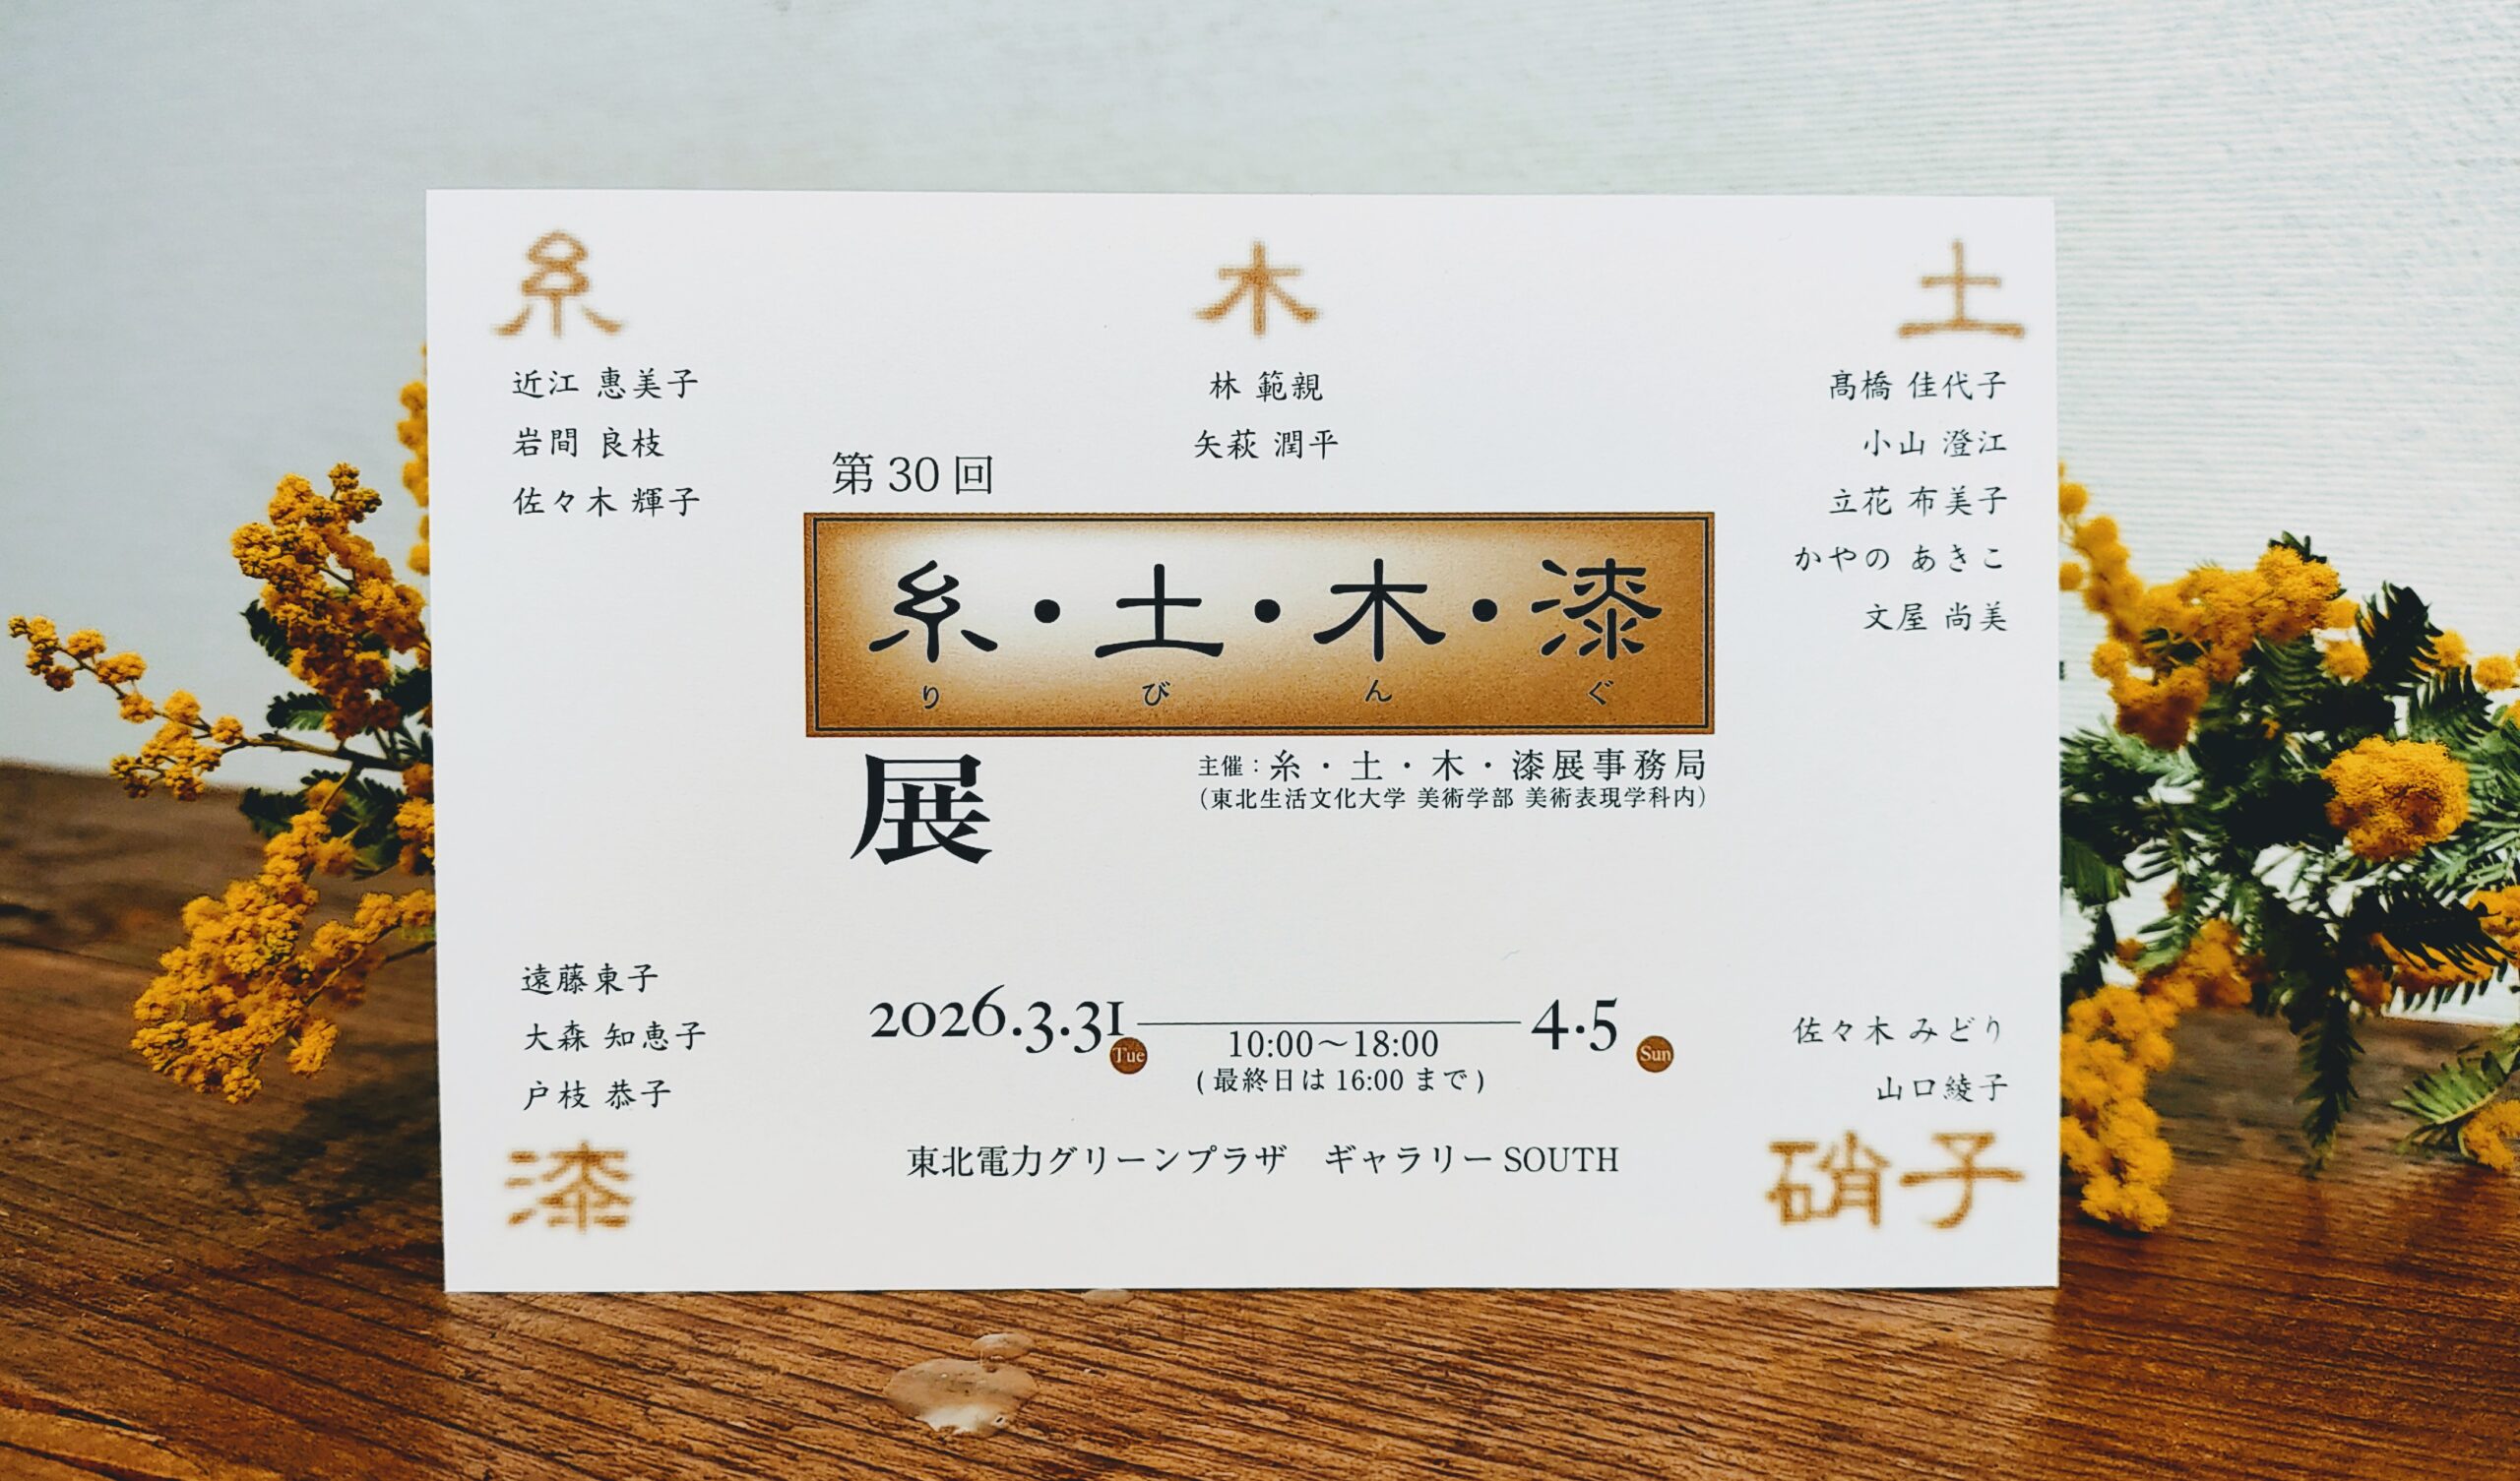 糸
近江 惠美子
岩間 良枝
佐々木 輝子
木
林 範親
矢萩 潤平
土
髙橋 佳代子
小山 澄江
立花 布美子
かやの あきこ
文屋 尚美
第30回
糸・土・木・漆
り び ん ぐ
展
主催：糸・土・木・漆展事務局
（東北生活文化大学 美術学部 美術表現学科内）
遠藤東子
大森 知恵子
戸枝 恭子
漆
2026.3.31 Tue 4.5 Sun
10:00〜18:00
(最終日は 16:00 まで)
東北電力グリーンプラザ　ギャラリー SOUTH
佐々木 みどり
山口綾子
硝子